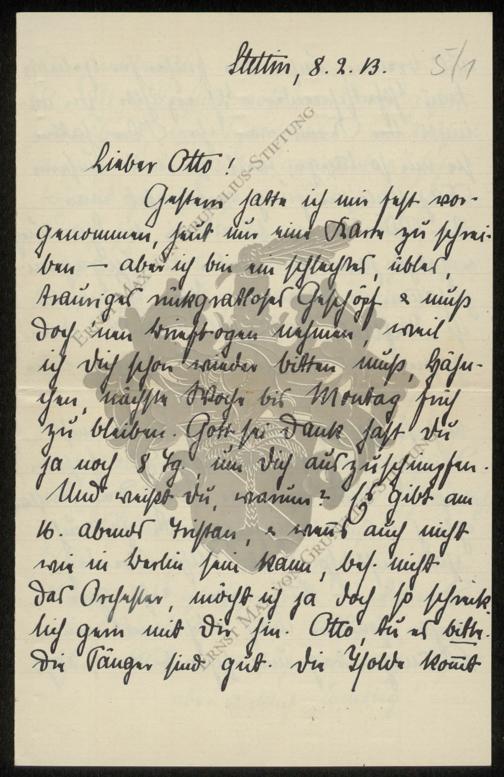 Stettin, 8. 2. 13.
5/1
Lieber Otto!
Gestern hatte ich mir fest vor-
genommen, heut nur eine Karte zu schrei-
ben – aber ich bin ein schlechtes, übles,
trauriges rückgratloses Geschöpf & muß
doch nen Briefbogen nehmen, weil
ich Dich schon wieder bitten muß, Hähn-
chen, nächste Woche bis Montag früh
zu bleiben. Gott sei Dank hast Du
ja noch 8 Tg., um Dich auszuschimpfen.
Und weißt Du, warum? Es gibt am
16. abends Tristan, & wenns auch nicht
wie in Berlin sein kann, bes. nicht
das Orchester, möcht ich ja doch so schreck
lich gern mit Dir hin. Otto, tu es bitte.
Die Sänger sind gut. Die Isolde kom̅t
ERNST MAX VON GRUNELIUS-STIFTUNG
ERNST MAX VON GRUNELIUS-STIFTUNG